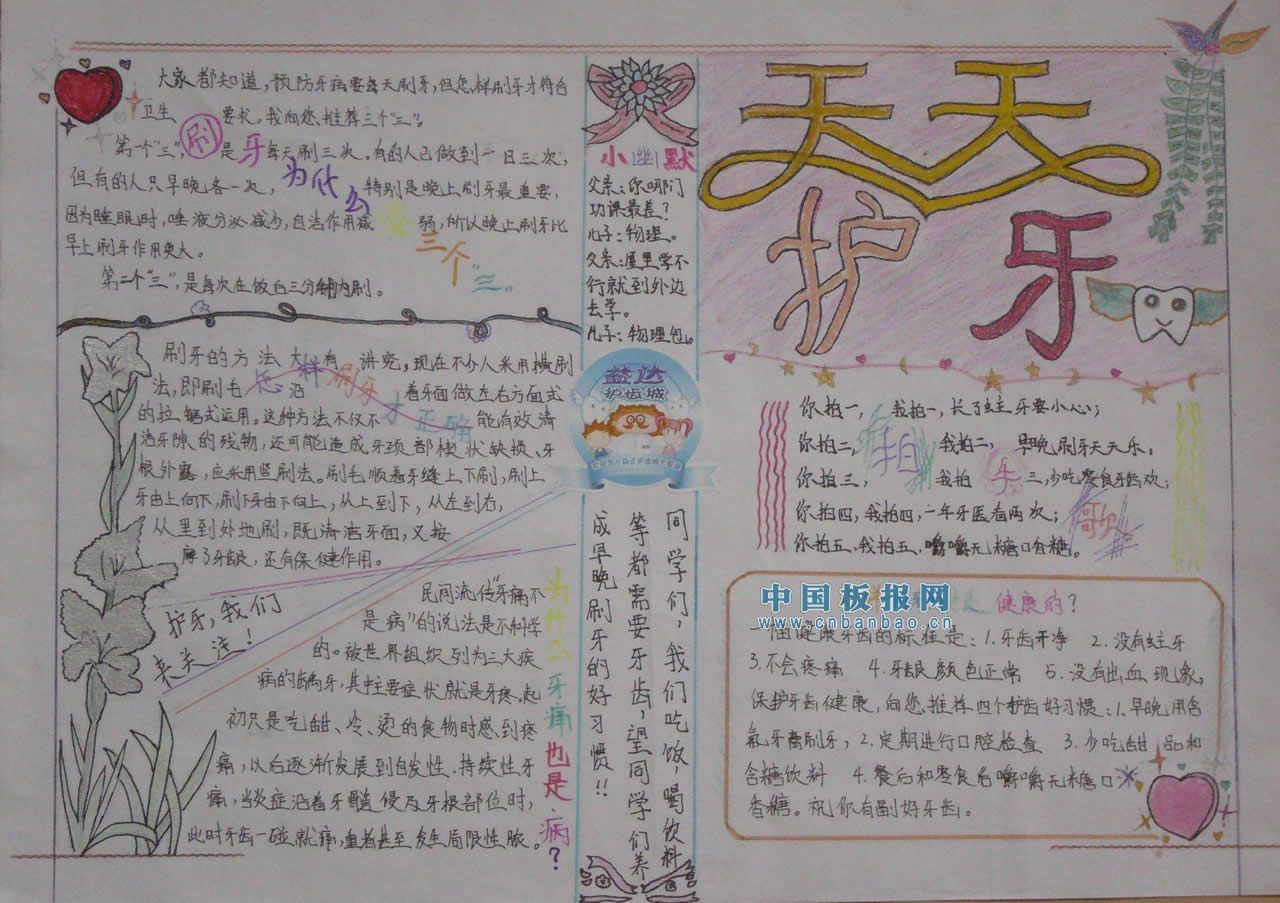 大家都知道，预防牙病要每天刷牙，但怎样刷牙才符合
卫生 要求。我向您推荐三个"三"。
第一个"三"，是每天刷三次。有的人已做到一日三次，
但有的人只早晚各一次，特别是晚上刷牙最重要，
因为睡眠时，唾液分泌减少，自洁作用减弱，所以晚上刷牙比
早上刷牙作用更大。
第二个"三"，是每次在饭后三分钟内刷。
刷牙为什么
三个"三"
刷牙的方法大有讲究，现在不少人采用横刷
法，即刷毛沿着牙面做左右方面式
的拉锯式运用。这种方法不仅不能有效清
洁牙隙的残物，还可能造成牙颈部楔状缺损、牙
根外露，应采用竖刷法。刷毛顺着牙缝上下刷，刷上
牙由上向下，刷下牙由下向上，从上到下，从左到右，
从里到外地刷，既清洁牙面，又按
摩了牙龈，还有保健作用。
怎样刷牙才正确
护牙，我们
来关注！
民间流传"牙痛不
是病"的说法是不科学
的。被世界组织列为三大疾
病的龋牙，其主要症状就是牙疼，起
初只是吃甜、冷、烫的食物时感到疼
痛，以后逐渐发展到自发性、持续性牙
痛，当炎症沿着牙髓侵及牙根部位时，
此时牙齿一碰就痛，患者甚至发生局限性脓。
为什么牙痛也是病？
小幽默
父亲：你哪门
功课最差？
儿子：物理。
父亲：屋里学不
行就到外边
去学。
儿子：物理包。
益达
护齿城
同学们，我们吃饭，喝饮料
等都需要牙齿，望同学们养
成早晚刷牙的好习惯！！
天天
护牙
你拍一，我拍一，长了蛀牙要小心；
你拍二，我拍二，早晚刷牙天天乐；
你拍三，我拍三，少吃零食牙齿欢；
你拍四，我拍四，一年牙医看两次；
你拍五、我拍五，嚼嚼无糖口香糖。
拍手歌
健康的？
中国板报网
www.cnbanbao.cn
一恒健康牙齿的标准是：1.牙齿干净 2.没有蛀牙
3.不会疼痛 4.牙龈颜色正常 5.没有出血现象，
保护牙齿健康，向您推荐四个护齿好习惯：1.早晚用含
氟牙膏刷牙；2.定期进行口腔检查 3.少吃甜品和
含糖饮料 4.餐后和零食后嚼嚼无糖口
香糖。祝你有副好牙齿。